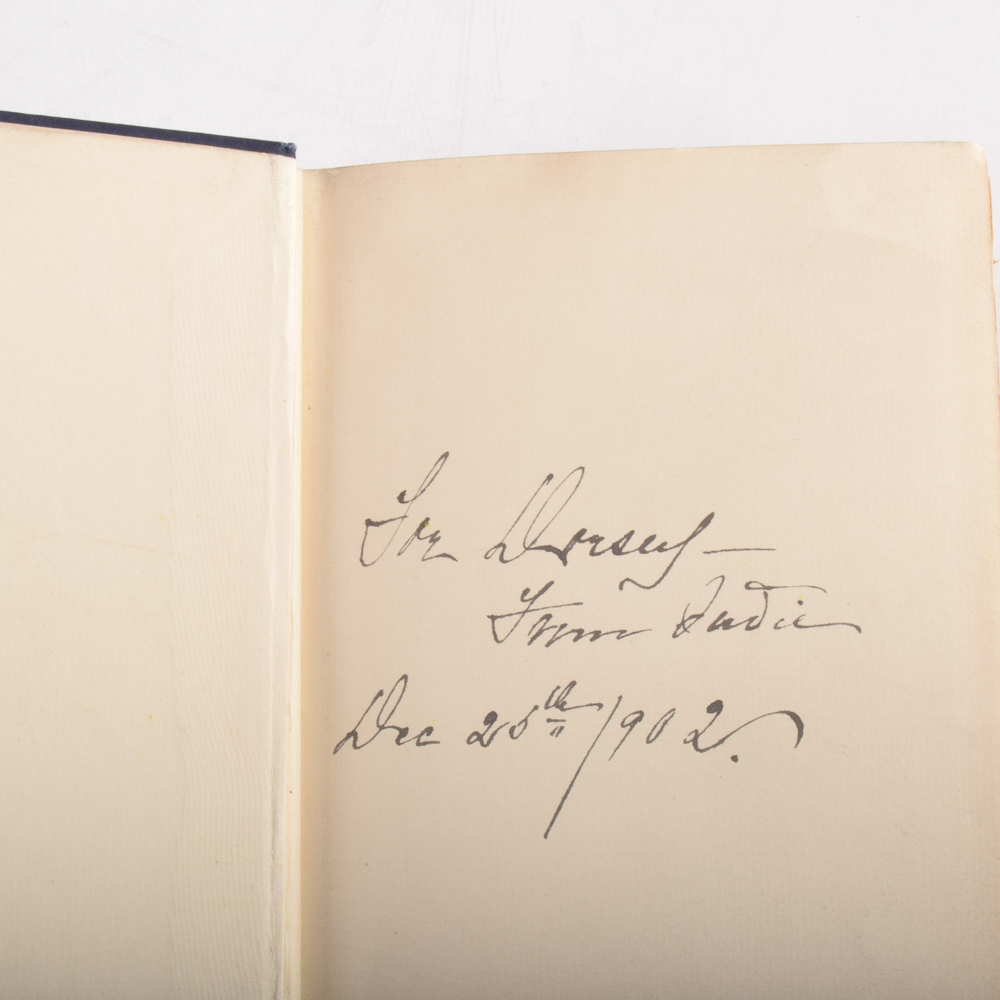 For Dorsey —
From Sadie
Dec 25th 1902.